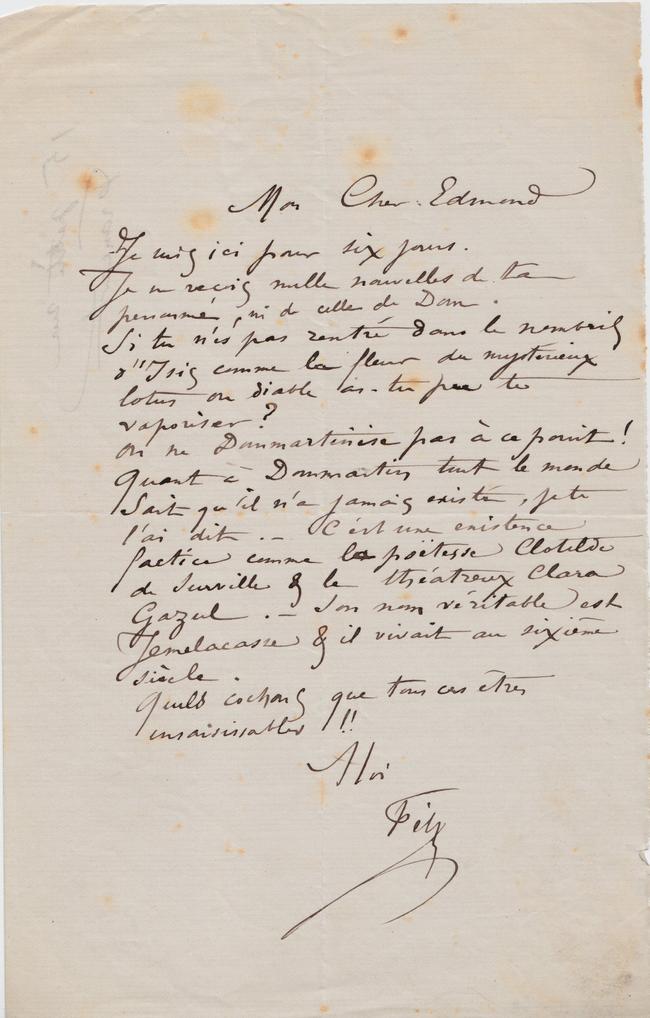 Mon Cher Edmond
Je suis ici pour six jours.
Je ne reçois nulle nouvelles de ta
personne, ni de celles de Dom.
Si tu n'es pas rentré dans le nombril
d'Isis comme la fleur du mystérieux
lotus ou diable as-tu pu te
vaporiser ?
on ne Dommartinise pas à ce point !
Quant à Dommartin tout le monde
sait qu'il n'a jamais existé, je te
l'ai dit. — C'est une existence
factice comme la poëtesse Clotilde
de Surville & le théâtreux Clara
Gazul. — Son nom véritable est
Jemelacasse & il vivait au sixième
siècle.
Quels cochons que tous ces êtres
insaisissables !!
A toi
Fély